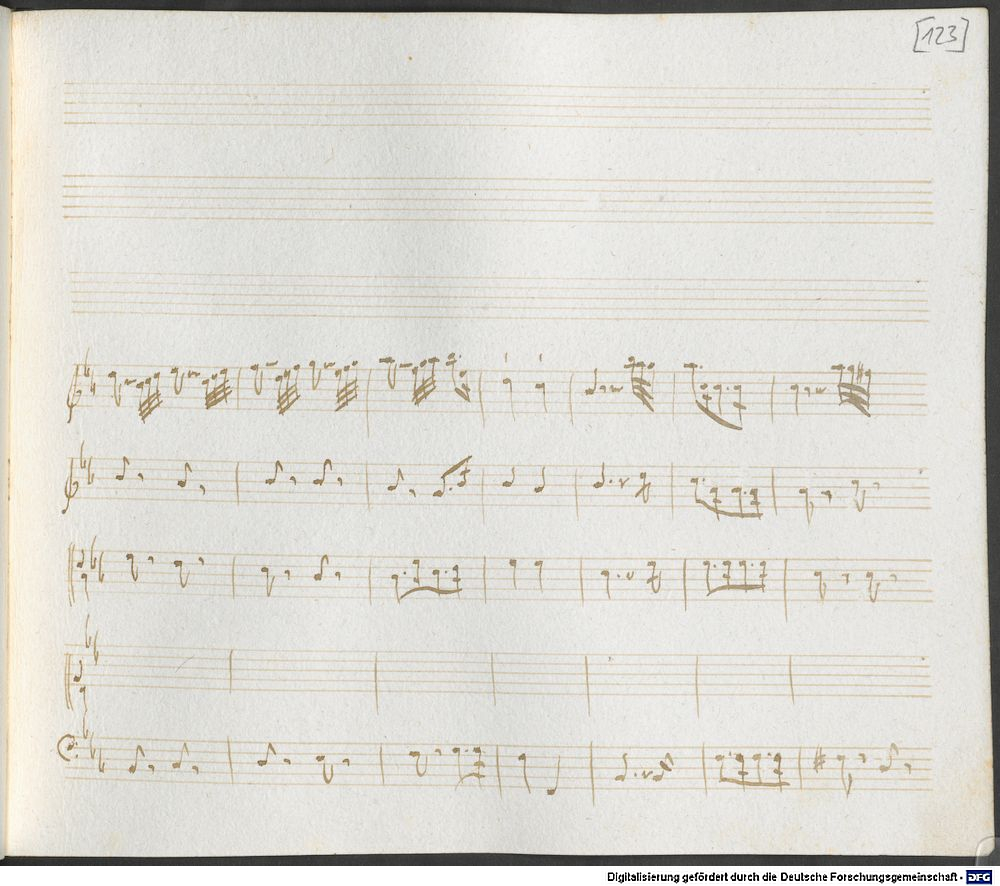 [123]
Digitalisierung gefördert durch die Deutsche Forschungsgemeinschaft - DFG